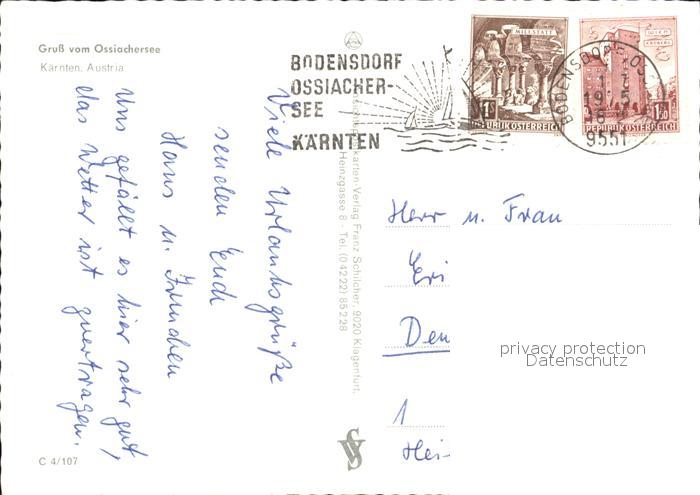 Gruß vom Ossiachersee
Kärnten, Austria
Viele Urlaubsgrüße
senden Euch
Hans u. Früchen
Uns gefällt es hier sehr gut,
das Wetter ist zuertragen.
C 4/107
BODENSDORF
OSSIACHER-
SEE
KÄRNTEN
MILLSTATT
1S
REPUBLIK ÖSTERREICH
WIEN
ERDBERG
1.50
REPUBLIK ÖSTERREICH
BODENSDORF
9551
Ansichtskarten-Verlag Franz Schilcher, 9020 Klagenfurt,
Heinzgasse 8 - Tel. (0 42 22) 85 2 28
Herr u. Frau
Eri
Den
1
Hei-
privacy protection
Datenschutz